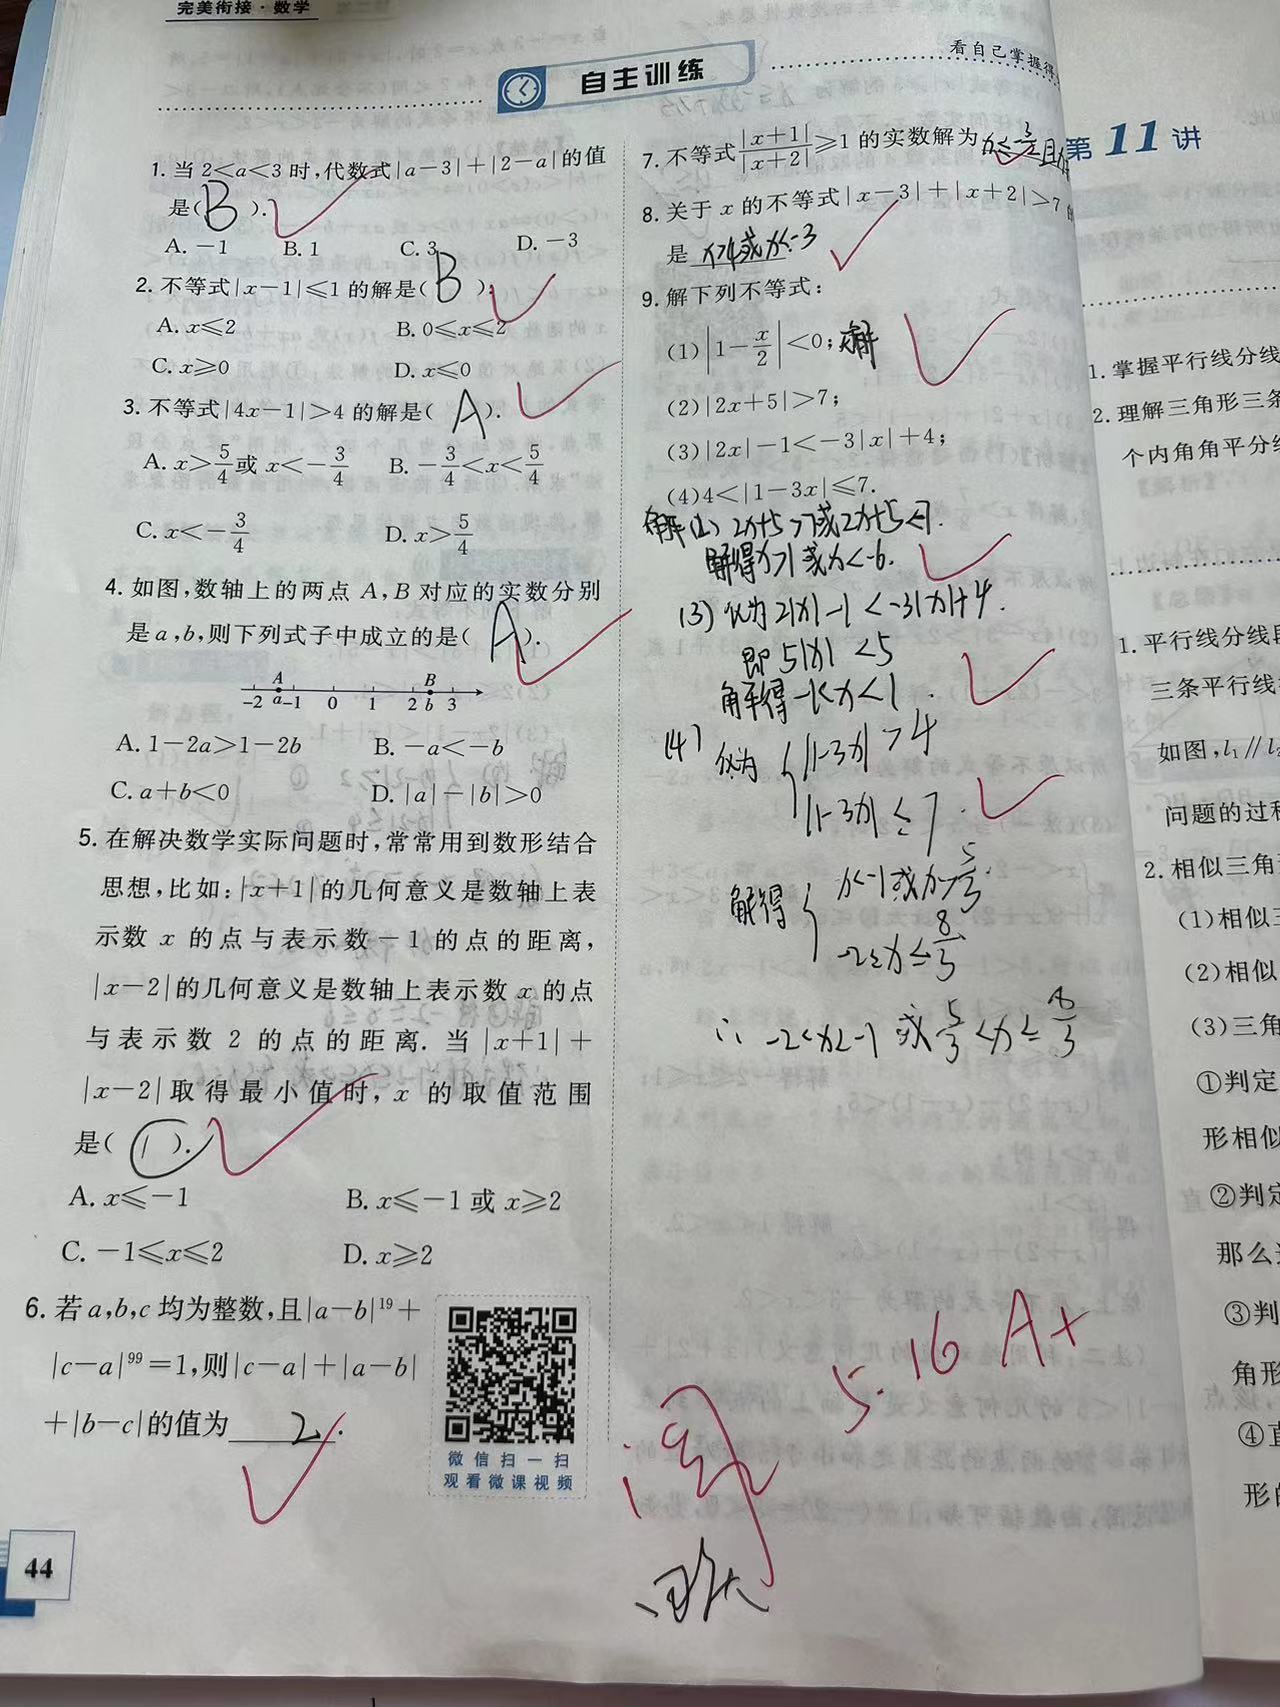 完美衔接·数学
自主训练
看自己掌握得
1. 当 2<a<3 时,代数式|a-3|+|2-a|的值
是( B ).
A. -1 B. 1 C. 3 D. -3
2. 不等式|x-1|≤1 的解是( B ).
A. x≤2 B. 0≤x≤2
C. x≥0 D. x≤0
3. 不等式|4x-1|>4 的解是( A ).
A. x>5/4或 x<-3/4 B. -3/4<x<5/4
C. x<-3/4 D. x>5/4
4. 如图,数轴上的两点 A,B 对应的实数分别
是 a,b,则下列式子中成立的是( A ).
A B
-2 a -1 0 1 2 b 3
A. 1-2a>1-2b B. -a<-b
C. a+b<0 D. |a|-|b|>0
5. 在解决数学实际问题时,常常用到数形结合
思想,比如:|x+1|的几何意义是数轴上表
示数 x 的点与表示数-1 的点的距离,
|x-2|的几何意义是数轴上表示数 x 的点
与表示数 2 的点的距离. 当|x+1|+
|x-2|取得最小值时, x 的取值范围
是( ).
A. x≤-1 B. x≤-1 或 x≥2
C. -1≤x≤2 D. x≥2
6. 若 a,b,c 均为整数,且|a-b|¹⁹+
|c-a|⁹⁹=1,则|c-a|+|a-b|
+|b-c|的值为 2 .
微信扫一扫
观看微课视频
44
7. 不等式|x+1|/|x+2|≥1 的实数解为
8. 关于 x 的不等式|x-3|+|x+2|>7
是 x>4或x<-3
9. 解下列不等式:
(1)|1-x/2|<0; 无解
(2)|2x+5|>7;
(3)|2x|-1<-3|x|+4;
(4)4<|1-3x|≤7.
解(2) 2x+5>7或2x+5<-7.
解得x>1或x<-6.
(3) 化为 2|x|-1<-3|x|+4.
即 5|x|<5
解得-1<x<1.
(4) 化为 { |1-3x|>4
|1-3x|≤7.
解得 { x<-1或x>5/3.
-2≤x≤8/3
∴ -2≤x<-1 或 5/3<x≤8/3
5.16 A+
第 11 讲
1. 掌握平行线分线
2. 理解三角形三条
个内角角平分线
1. 平行线分线段
三条平行线
如图,l₁∥l₂
问题的过程
2. 相似三角形
(1)相似三
(2)相似
(3)三角
①判定
形相似
②判定
那么
③判
角形
④直
形的